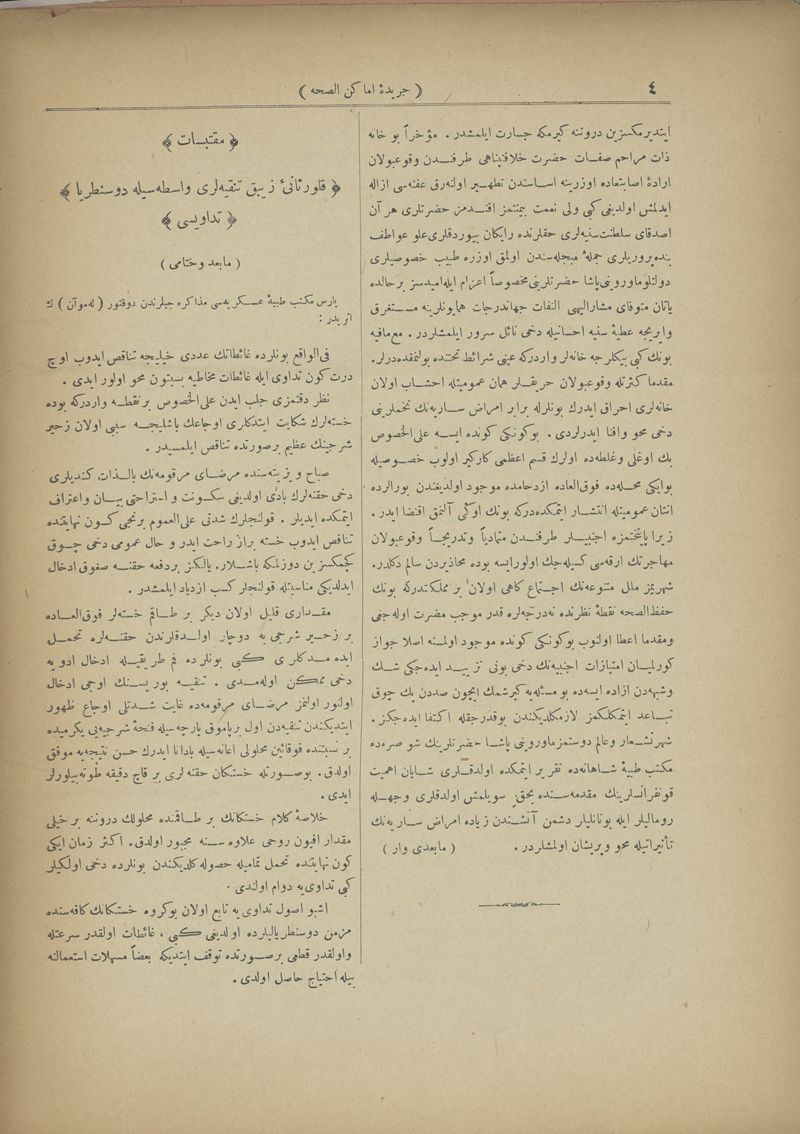 ٤
( جريدۀ اماكن الصحه )
ايتديرمكسزين دروننه كيرمكه جسارت ايلمشدر . مؤخراً بو خانه
ذات مراحم صفات حضرت خلافتپناهى طرفندن وقوعبولان
ارادۀ اصابتعاده اوزرينه اساسندن تطهير اولنه‌رق عفنه‌سى ازاله
ايدلمش اولديغى كبى ولى نعمت بيمنتمز افندمز حضرتلرى هر آن
اصدقاى سلطنت سنيه‌لرى حقلرنده رايكان بيوردقلرى علو عواطف
بنده‌پروريلرى جملۀ مبجله‌سندن اولمق اوزره طبيب خصوصيلرى
دولتلو ماورونى پاشا حضرتلرينى مخصوصاً اعزام ايله اميدسز برحالده
ياتان متوفاى مشاراليهى التفات جهاندرجات همايونلرينه مستغرق
وايريجه عطيۀ سنيه احسانيله دخى نائل سرور ايلمشلردر . مع مافيه
بونك كبى بيكلرجه خانه‌لر واردركه عينى شرائط تحتنده بولنمقده‌درلر.
مقدما كثرتله وقوعبولان حريقلر همان عموميتله احشاب اولان
خانه‌لرى احراق ايدرك بونلرله برابر امراض ساريه‌نك تخملرينى
دخى محو وافنا ايدرلردى . بوكونكى كونده ايسه على الخصوص
بك اوغلى وغلطه‌ده اولرك قسم اعظمى كاركير اولوب خصوصيله
بوايكى محله‌ده فوق‌العاده ازدحامده موجود اولديغندن بورالرده
انتان عموميتله انتشار ايتمكده‌دركه بونك اوكى آلنمق اقتضا ايدر .
زيرا پايتختمزه اجنبيلر طرفندن متمادياً وتدريجاً وقوعبولان
مهاجرتك ارقه‌سى كسيله‌جك اولورايسه بوده محاذيردن سالم دكلدر.
شهريمز ملل متنوعه‌نك اجتماع كاهى اولان بر مملكتدركه بونك
حفظ‌الصحه نقطۀ نظرنده نه‌درجه‌لره قدر موجب مضرت اوله‌جغى
ومقدما اعطا اولنوب بوكونكى كونده موجود اولمسنه اصلا جواز
كورلميان امتيازات اجنبيه‌نك دخى بونى تزييد ايده‌جكى شك
وشبهه‌دن ازاده ايسه‌ده بو مسئله‌يه كيرشمك ايچون صددن پك چوق
تباعد ايتمكلكمز لازمكلديكندن بوقدرجقله اكتفا ايده‌جكز .
شهرتشعار وعالم دوستمز ماورونى پاشا حضرتلرينك شو صره‌ده
مكتب طبيۀ شاهانه‌ده تقرير ايتمكده اولدقلرى شايان اهميت
قونفرانسلرينك مقدمه‌سنده بحق سويلمش اولدقلرى وجهله
رومايلر ايله يونانيلر دشمن آتشندن زياده امراض ساريه‌نك
تأثيراتيله محو وپريشان اولمشلردر . ( مابعدى وار )
﴿ مقتبسات ﴾
﴿ قلورثانئ زيبق تنقيه‌لرى واسطه‌سيله دوسنطريا ﴾
﴿ تداويسى ﴾
( مابعد وختامى )
پارس مكتب طبيۀ عسكريه‌سى مذاكره جيلرندن دوقتور ( له‌موآن ) ك
اثريدر :
فى‌الواقع بونلرده غائطاتك عددى خيليجه تناقص ايدوب اوچ
درت كون تداوى ايله غائطات مخاطيه بسبتون محو اولور ايدى .
نظر دقتمزى جلب ايدن على‌الخصوص برنقطه واردركه بوده
خسته‌لرك شكايت ايتدكارى اوجاعك باشليجه سببى اولان زحير
شرجينك عظيم برصورتده تناقص ايلمسيدر .
صباح ويزيته‌سنده مرضاى مرقومه‌نك بالذات كنديلرى
دخى حقنه‌لرك بادئ اولديغى سكونت و استراحتى بيان واعتراف
ايتمكده ايديلر . قولنجلرك شدتى على‌العموم برنجى كون نهايتنده
تناقص ايدوب خسته براز راحت ايدر و حال عمومى دخى چوق
كچمكسزين دوزلمكه باشلار. يالكز بردفعه حقنه صفوق ادخال
ايدلديكى مناسبتله قولنجلر كسب ازدياد ايلمشدر .
مقدارى قليل اولان ديكر بر طاقم خسته‌لر فوق‌العاده
بر زحير شرجى‌يه دوچار اولدقلرندن حقنه‌لره تحمل
ايده‌مدكلرى كبى بونلرده فم طريقيله ادخال ادويه
دخى ممكن اوله‌مدى . تنقيه بوريسنك اوجى ادخال
اولنور اولنمز مرضاى مرقومه‌ده غايت شدتلى اوجاع ظهور
ايتديكندن تنقيه‌دن اول برپاموق پارچه‌سيله فتحۀ شرجيه‌يى يكرميده
بر نسبتنده قوقائين محلولى اعانه‌سيله بادانا ايدرك حسن نتيجه‌يه موفق
اولدق. بوصورتله خستكان حقنه‌لرى بر قاچ دقيقه طوته‌بيلورلر
ايدى .
خلاصۀ كلام خستكانك بر طاقمنده محلولك دروننه بر خيلى
مقدار افيون روحى علاوه‌سنه مجبور اولدق. اكثر زمان ايكى
كون نهايتنده تحمل تماميله حصوله كلديكندن بونلرده دخى اولكيلر
كبى تداوى‌يه دوام اولندى .
اشبو اصول تداوى‌يه تابع اولان بوكروه خستكانك كافه‌سنده
مزمن دوسنطريالرده اولديغى كبى ، غائطات اولقدر سرعتله
واولقدر قطعى برصورتده توقف ايتديكه بعضاً مسهلات استعمالنه
بيله احتياج حاصل اولدى .